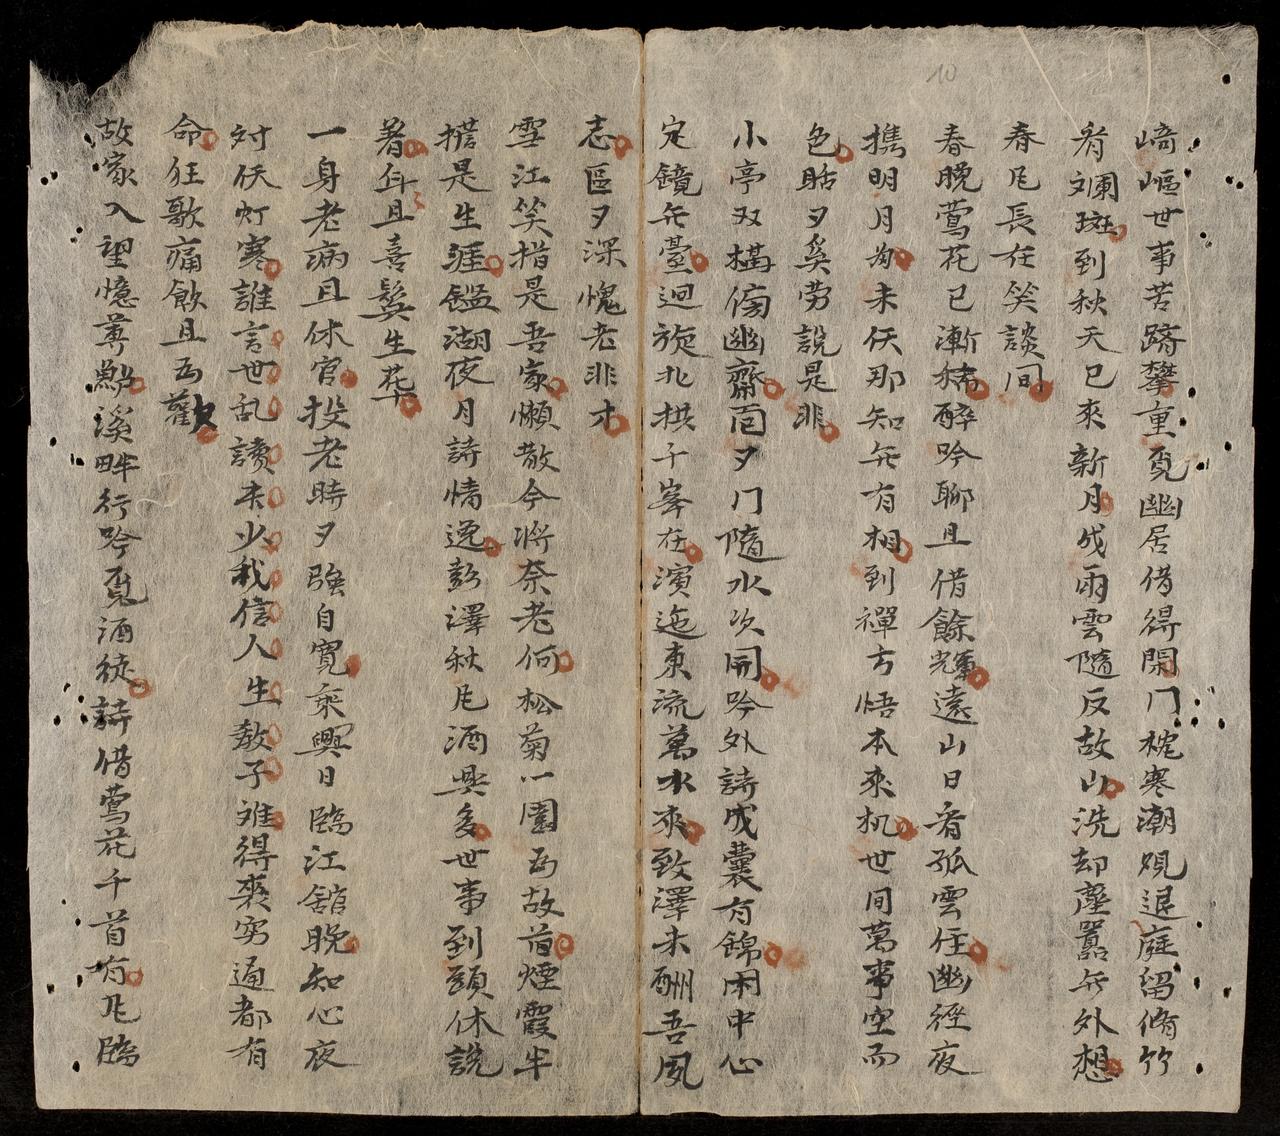 崎嶇世事苦躋攀重覓幽居借得閑门枕寒潮覌退庭留脩竹
看斓斑到秋天已來新月成雨雲隨反故山洗却塵嚣无外想
春凡長在笑談间
春晚鶯花已漸稀醉吟聊且借餘輝遠山日看孤雲住幽徑夜
携明月勾未伕那知无有相到禪方悟本來机世间萬事空而
色眙夕奚劳說是非
小亭双橘傍幽齋面夕门隨水次開吟外詩成囊有錦困中心
定鏡无臺迴旋北拱千峯在演迤東流萬水來致澤未酬吾夙
志區夕深愧老非才
雪江笑指是吾家懒散今將奈老何松菊一園为故首煙霞半
擔是生涯鑑湖夜月詩情逸彭澤秋凡酒興多世事到頭休説
著年且喜鬓生华
一身老病且休官投老時夕強自寬乘興日臨江舘晚知心夜
对伕灯寒誰言世乱讀未少我信人生教子难得丧穷通都有
命狂歌痛飲且为歡
故家入望憶尊鱸溪畔行吟覓酒徒詩借鶯花千首有凡臨